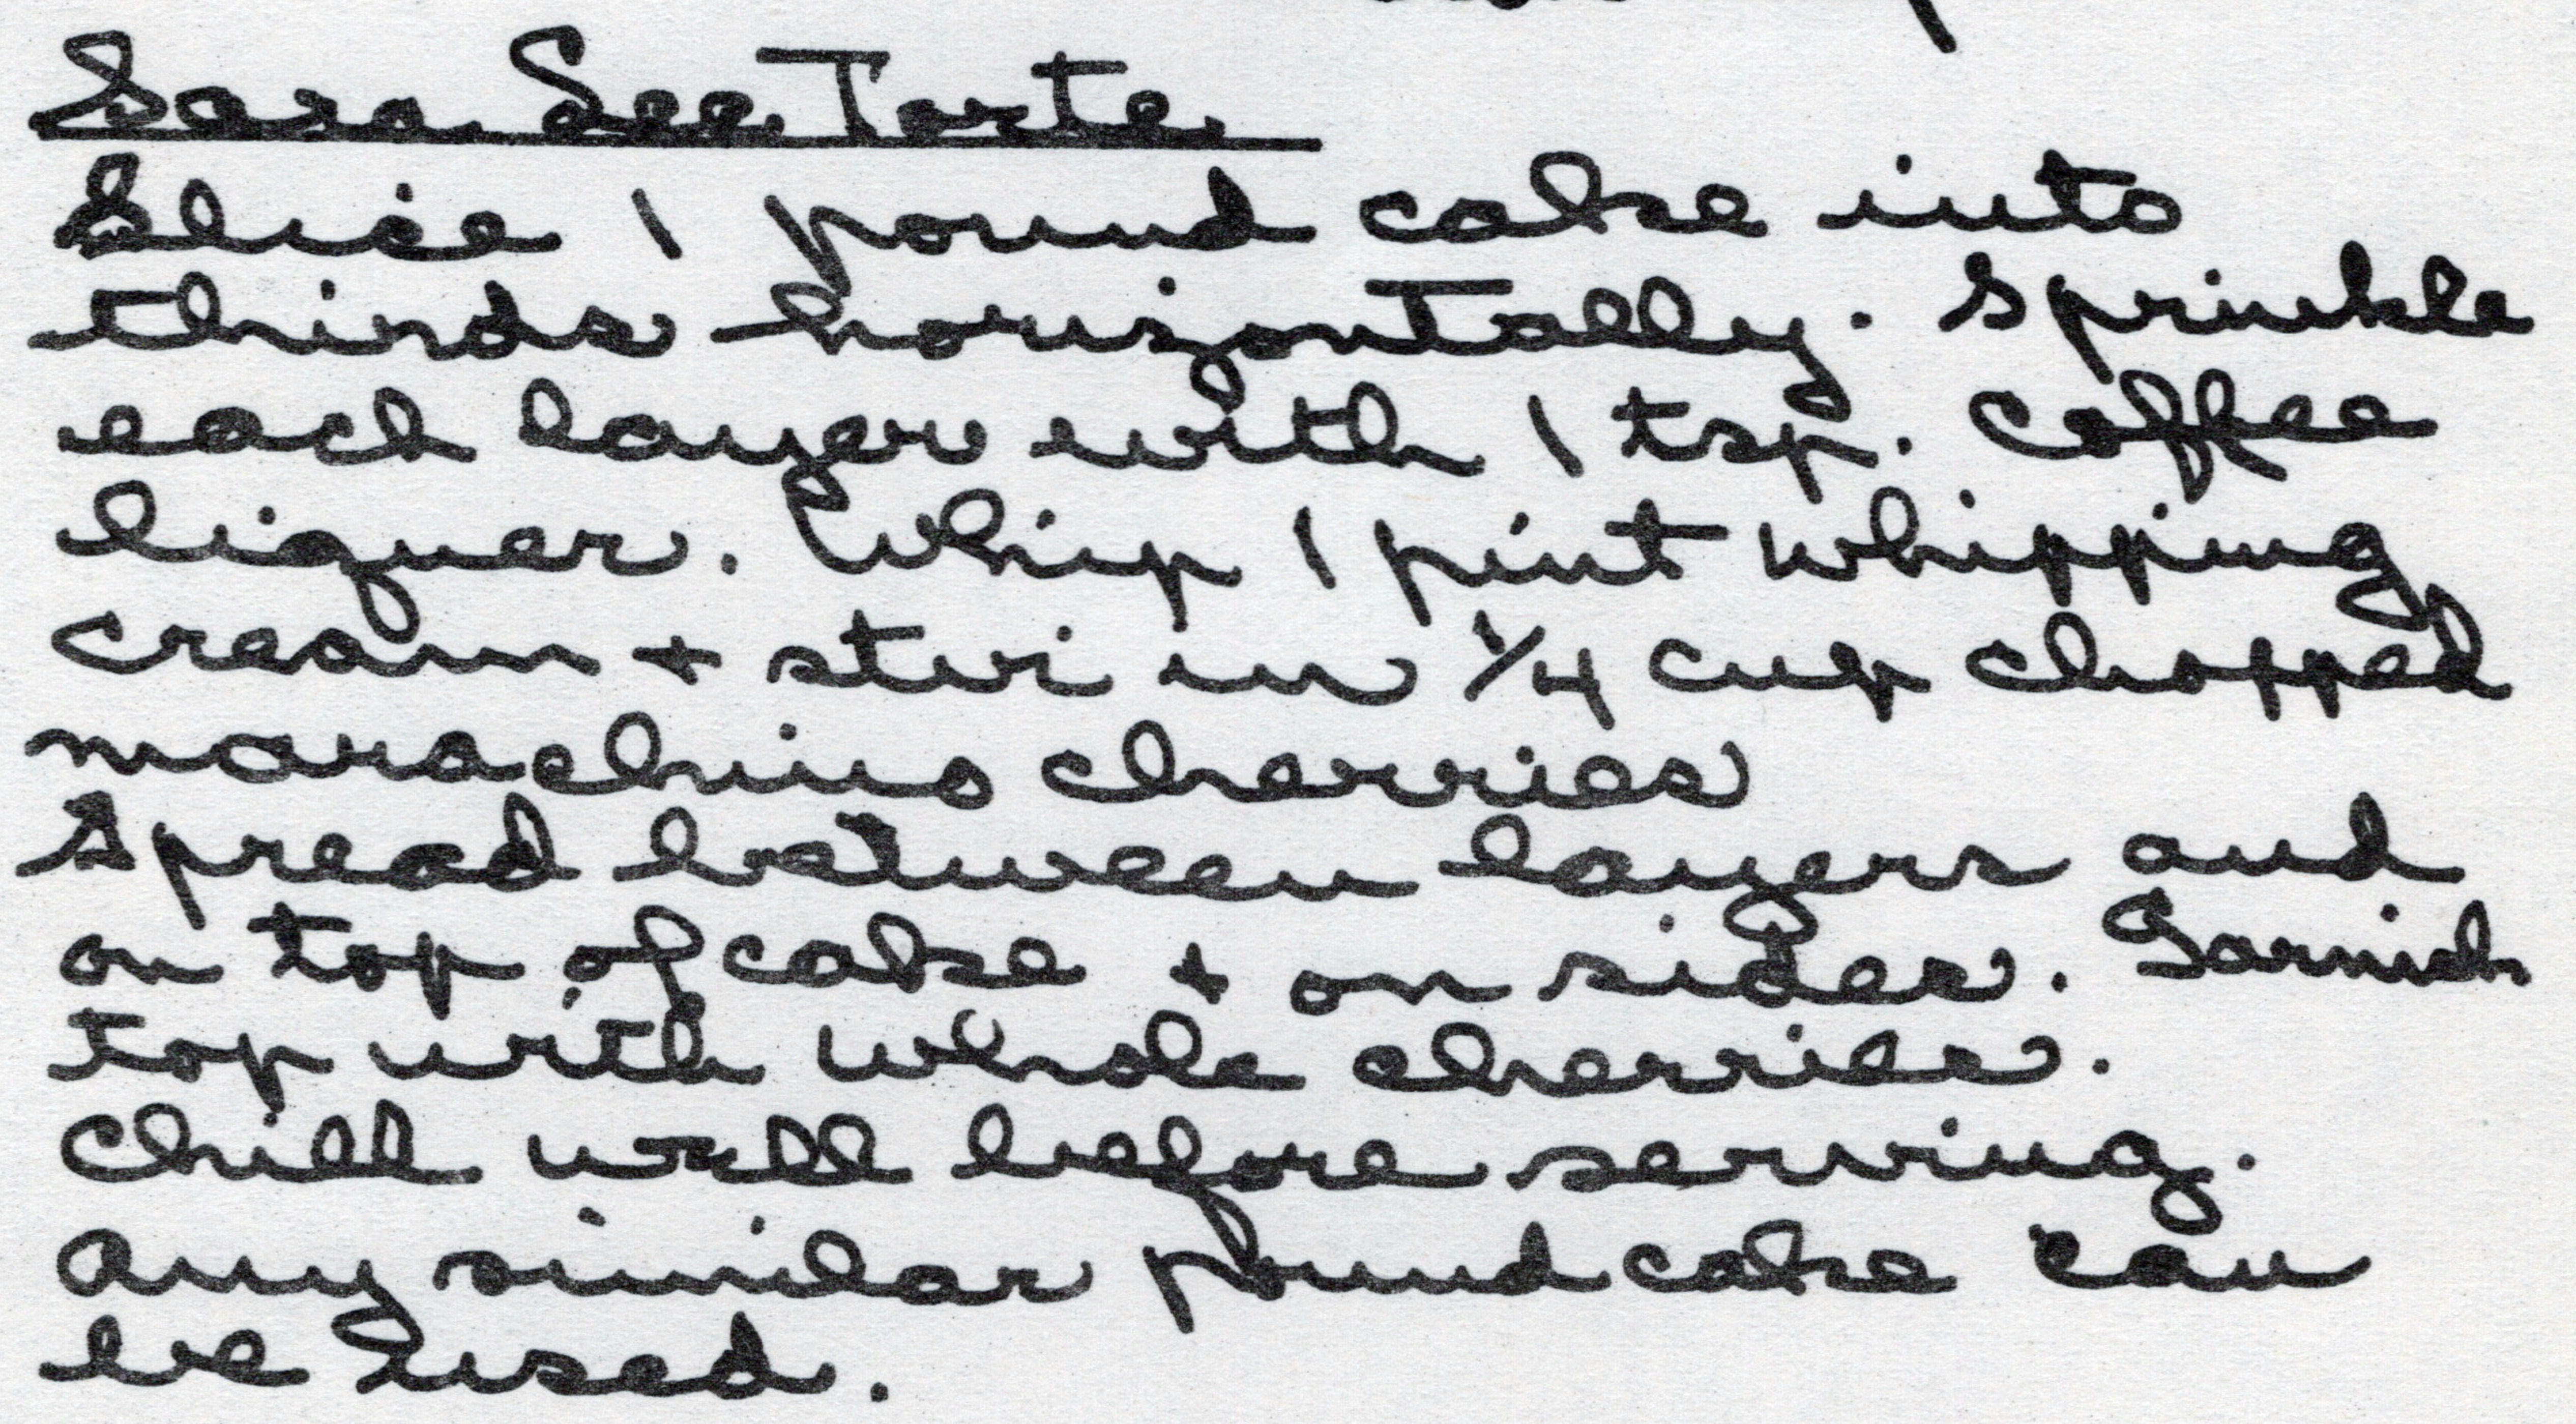 Sara Lee Torte
Slice 1 pound cake into
thirds horizontally. Sprinkle
each layer with 1 tsp. coffee
liquer. Whip 1 pint whipping
cream + stir in 1/4 cup chopped
marachino cherries
Spread between layers and
on top of cake + on sides. Garnish
top with whole cherries.
Chill well before serving.
Any similar pound cake can
be used.